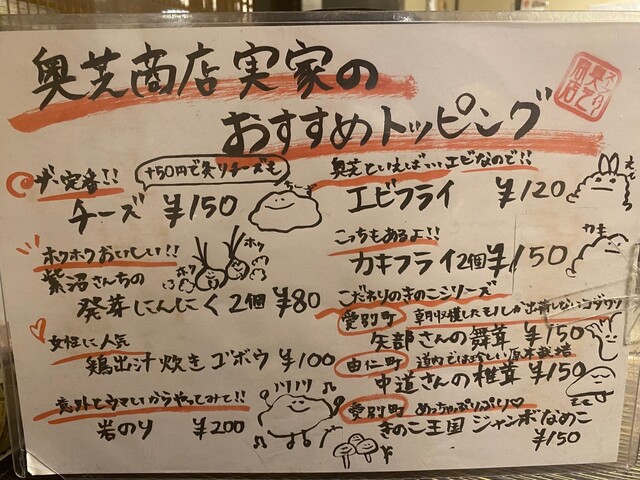 奥芝商店実家の
おすすめトッピング
ザ・定番!!
+50円で炙りチーズも
チーズ ¥150
ホクホクおいしい!!
ホク
ホク
紫沼さんちの
発芽にんにく 2個 ¥80
女性に人気
鶏出汁炊きゴボウ ¥100
意外とウマいからやってみて!!
岩のり ¥200
奥芝といえばいいエビなので!!
エビフライ ¥120
こっちもあるよ!!
カキフライ2個¥150
カキ
こだわりのきのこシリーズ
愛別町 朝収穫したモノしか出荷しないコダワリ
矢部さんの舞茸 ¥150
由仁町 道内では珍しい原木栽培
中道さんの椎茸 ¥150
愛別町 めっちゃぷりぷり♡
きのこ王国 ジャンボなめこ
¥150